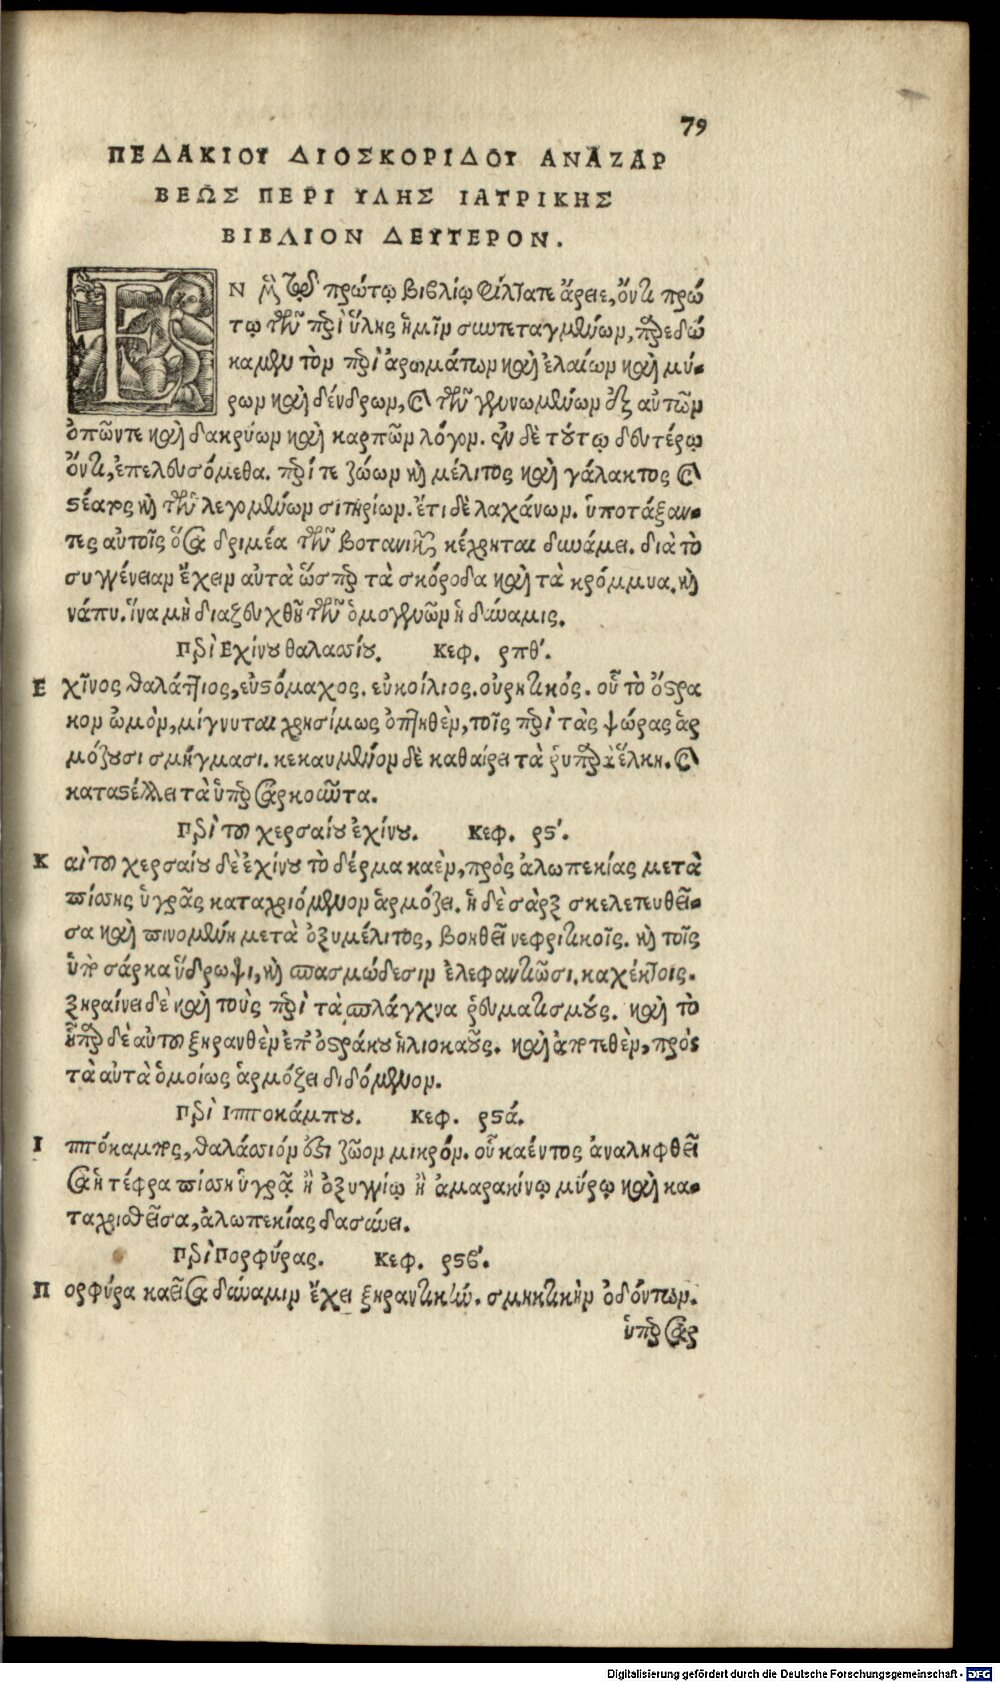 79
ΠΕΔΑΚΙΟΥ ΔΙΟΣΚΟΡΙΔΟΥ ΑΝΑΖΑΡ
ΒΕΩΣ ΠΕΡΙ ΥΛΗΣ ΙΑΤΡΙΚΗΣ
ΒΙΒΛΙΟΝ ΔΕΥΤΕΡΟΝ.
ΕΝ μὲν τῷ πρώτῳ βιβλίῳ φίλτατε ἄρειε, ὄντι πρώ
τῳ τῶν περὶ ὕλης ἡμῖν συντεταγμένων, παρεδώ
καμεν τὸν περὶ ἀρωμάτων καὶ ἐλαίων καὶ μύ-
ρων καὶ δένδρων, καὶ τῶν γενομένων ἐξ αὐτῶν
ὀπῶντε καὶ δακρύων καὶ καρπῶν λόγον. ἐν δὲ τούτῳ δευτέρῳ
ὄντι, ἐπελευσόμεθα. περί τε ζώων καὶ μέλιτος καὶ γάλακτος καὶ
στέατος καὶ τῶν λεγομένων σιτηρίων. ἔτι δὲ λαχάνων. ὑποτάξαν-
τες αὐτοῖς ὅσα δριμέα τῶν βοτανικῶν κέχρηται δυνάμει. διὰ τὸ
συγγένειαν ἔχειν αὐτὰ ὥσπερ τὰ σκόροδα καὶ τὰ κρόμμυα. καὶ
νάπυ. ἵνα μὴ διαζευχθῇ τῶν ὁμογενῶν ἡ δύναμις.
Περὶ Εχίνου θαλασσίου. Κεφ. ρπθ´.
Ε χῖνος θαλάττιος, εὐστόμαχος. εὐκοίλιος. οὐρητικός. οὗ τὸ ὄστρα
κον ὠμὸν, μίγνυται χρησίμως ὀπτηθὲν, τοῖς περὶ τὰς ψώρας ἁρ
μόζουσι σμήγμασι. κεκαυμένον δὲ καθαίρει τὰ ῥυπαρὰ ἕλκη. καὶ
καταστέλλει τὰ ὑπερσαρκοῦντα.
Περὶ τοῦ χερσαίου ἐχίνου. Κεφ. ρϛ´.
Κ αὶ τοῦ χερσαίου δὲ ἐχίνου τὸ δέρμα καὲν, πρὸς ἀλωπεκίας μετὰ
πίσσης ὑγρᾶς καταχριόμενον ἁρμόζει. ἡ δὲ σὰρξ σκελετευθεῖ-
σα καὶ πινομένη μετὰ ὀξυμέλιτος, βοηθεῖ νεφριτικοῖς. καὶ τοῖς
ὑπὸ σάρκα ὕδρωψι, καὶ σπασμώδεσιν ἐλεφαντιῶσι. καχέκτοις.
ξηραίνει δὲ καὶ τοὺς περὶ τὰ σπλάγχνα ῥευματισμούς. καὶ τὸ
ἧπαρ δὲ αὐτοῦ ξηρανθὲν ἐπ' ὀστράκου ἡλιοκαοῦς. καὶ ἀποτεθὲν, πρὸς
τὰ αὐτὰ ὁμοίως ἁρμόζει διδόμενον.
Περὶ Ιπποκάμπου. Κεφ. ρϛά.
Ι ππόκαμπος, θαλάσσιόν ἐστι ζῶον μικρόν. οὗ καέντος ἀναληφθεῖ
σα ἡ τέφρα πίσσῃ ὑγρᾷ ἢ ὀξυγγίῳ ἢ ἀμαρακίνῳ μύρῳ καὶ κα-
ταχρισθεῖσα, ἀλωπεκίας δασύνει.
Περὶ Πορφύρας. Κεφ. ρϛβ´.
Π ορφύρα καεῖσα δύναμιν ἔχει ξηραντικήν. σμηκτικὴν ὀδόντων.
ὑπερσαρ
Digitalisierung gefördert durch die Deutsche Forschungsgemeinschaft - DFG